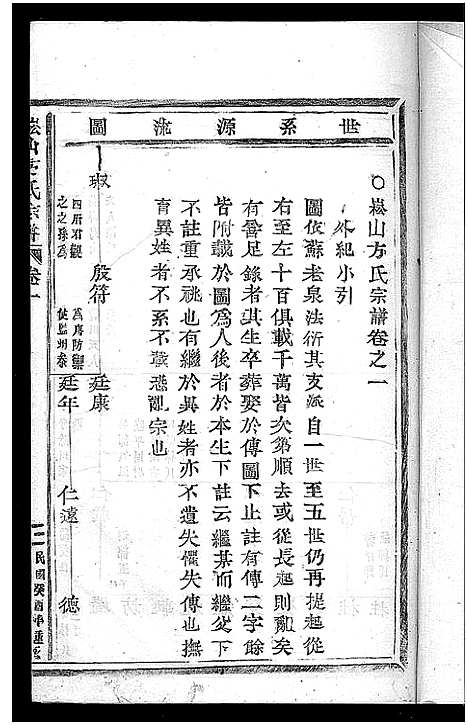 世系源流圖
○崧山方氏宗譜卷之一
外紀小引
圖依蘇老泉法衍其支派自一世至五世仍再提起從
右至左十百俱載千萬皆次第順去或從長起則亂矣
有善足錄者其生卒葬娶於傳圖下止註有傳二字餘
皆附載於圖爲人後者於本生下註云繼某而繼父下
不註重承祧也有繼於異姓者亦不遺失懼失傳也撫
育異姓者不系不載恐亂宗也
琡
殷符
廷康
廷年
仁遠
德
崧山方氏宗譜
卷一
一
民國癸酉年重修